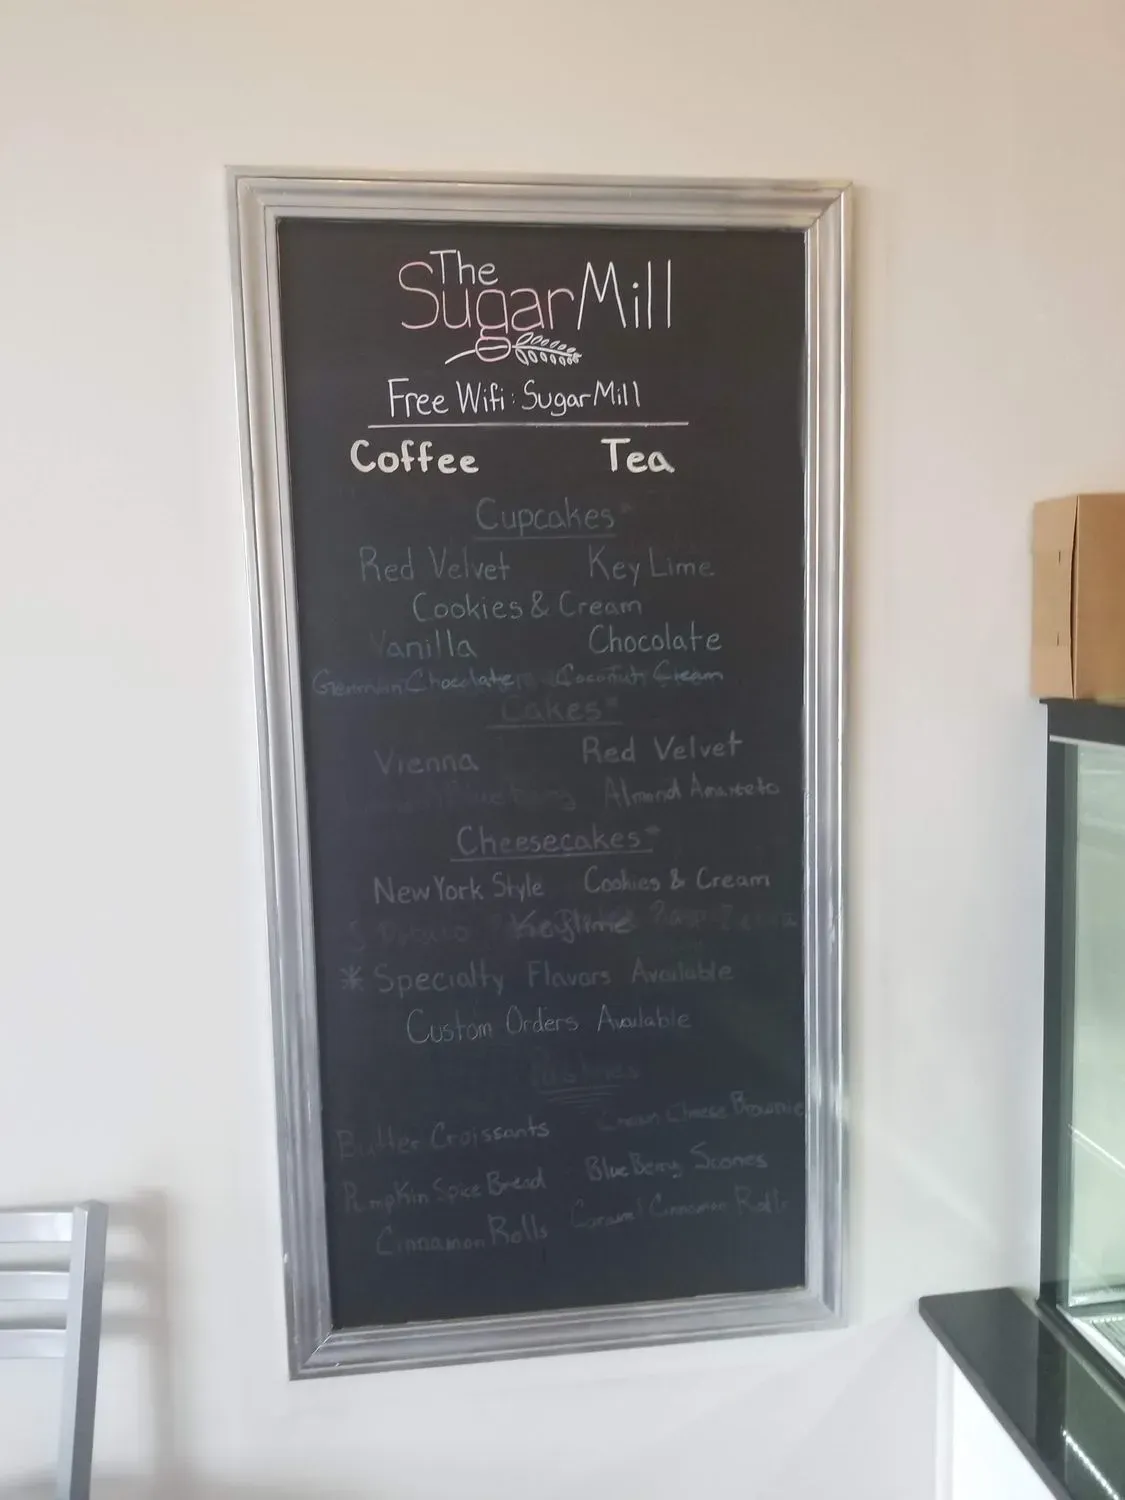 The
SugarMill
Free Wifi: SugarMill
Coffee Tea
Cupcakes*
Red Velvet Key Lime
Cookies & Cream
Vanilla Chocolate
German Chocolate Coconut Cream
Cakes*
Vienna Red Velvet
Almond Amaretto
Cheesecakes*
New York Style Cookies & Cream
Keylime
* Specialty Flavors Available
Custom Orders Available
Pastries
Butter Croissants Cream Cheese Brownie
Pumpkin Spice Bread Blue Berry Scones
Cinnamon Rolls Caramel Cinnamon Rolls